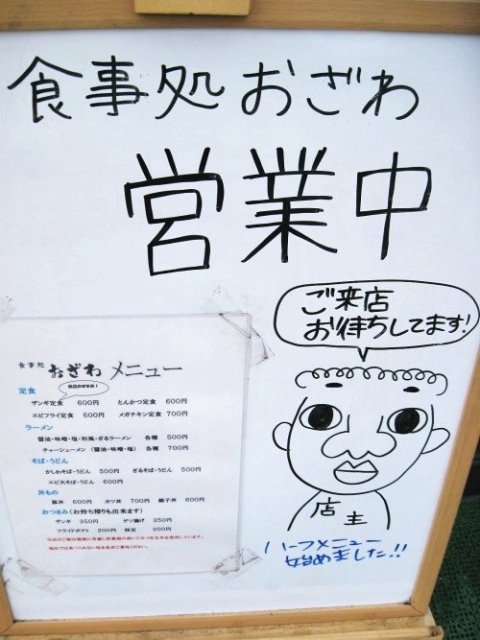 食事処おざわ
営業中
ご来店
お待ちしてます!
店主
ハーフメニュー
始めました!!
食事処 おざわ メニュー
定食
ザンギ定食 600円 とんかつ定食 600円
エビフライ定食 600円 メガチキン定食 700円
ラーメン
醤油・味噌・塩・和風・ざるラーメン 各種 500円
チャーシューメン(醤油・味噌・塩) 各種 700円
そば・うどん
かしわそば・うどん 500円 ざるそば・うどん 500円
エビ天そば・うどん 600円
丼もの
豚丼 600円 カツ丼 700円 親子丼 600円
おつまみ(お持ち帰りも出来ます)
ザンギ 350円 ゲソ揚げ 350円
フライドポテト 200円 枝豆 200円